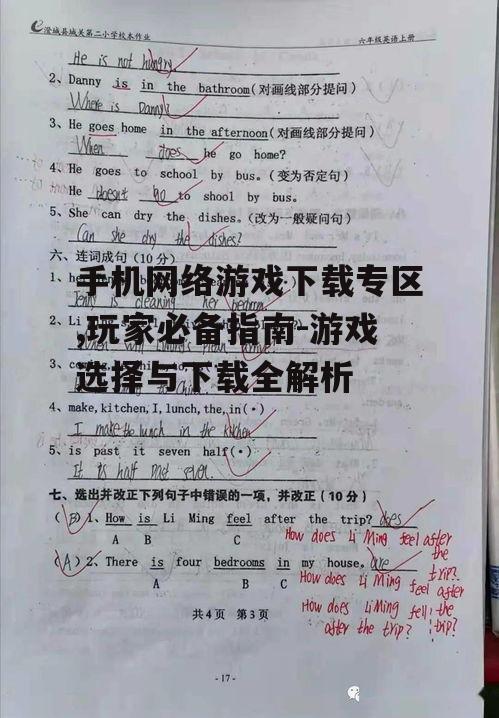 澄城县城关第二小学校本作业 六年级英语上册
He is not hungry
2、Danny is in the bathroom(对画线部分提问)
Where is Danny?
3、He goes home in the afternoon(对画线部分提问)
When does he go home?
4、He goes to school by bus.(变为否定句)
He doesn't go to shool by bus.
5、She can dry the dishes.(改为一般疑问句)
Can she dry the dishes?
六、连词成句(10分)
手机网络游戏下载专区
,玩家必备指南-游戏
选择与下载全解析
1、
Jenny is cleaning her bedroom
2、Li
3、
4、make,kitchen,I,lunch,the,in(·)
I make the lunch in the kitchen
5、is past it seven half(·)
It is half past seven.
七、选出并改正下列句子中错误的一项,并改正(10分)
(B)1、How is Li Ming feel after the trip? does
A B C
How does Li Ming feel after the trip?
(A)2、There is four bedrooms in my house. are
A B C
How does Li Ming feel after the trip?
How does Li Ming fell after the trip?
共4页 第3页
-17-